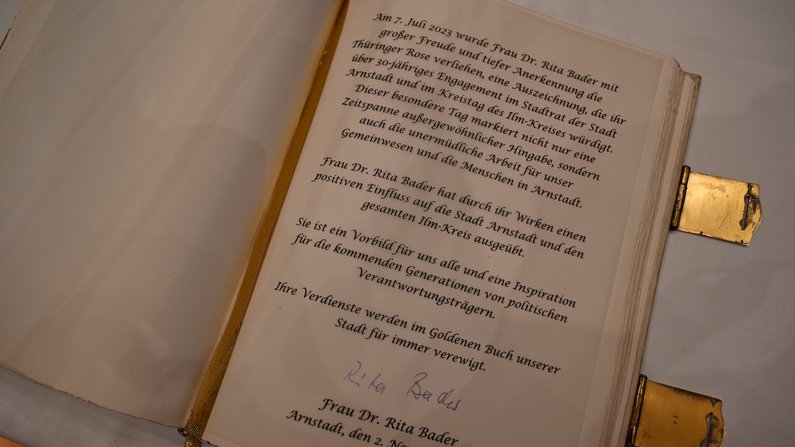 Am 7. Juli 2023 wurde Frau Dr. Rita Bader mit
großer Freude und tiefer Anerkennung die
Thüringer Rose verliehen, eine Auszeichnung, die ihr
über 30-jähriges Engagement im Stadtrat der Stadt
Arnstadt und im Kreistag des Ilm-Kreises würdigt.
Dieser besondere Tag markiert nicht nur eine
Zeitspanne außergewöhnlicher Hingabe, sondern
auch die unermüdliche Arbeit für unser
Gemeinwesen und die Menschen in Arnstadt.
Frau Dr. Rita Bader hat durch ihr Wirken einen
positiven Einfluss auf die Stadt Arnstadt und den
gesamten Ilm-Kreis ausgeübt.
Sie ist ein Vorbild für uns alle und eine Inspiration
für die kommenden Generationen von politischen
Verantwortungsträgern.
Ihre Verdienste werden im Goldenen Buch unserer
Stadt für immer verewigt.
Rita Bader
Frau Dr. Rita Bader
Arnstadt, den 2.